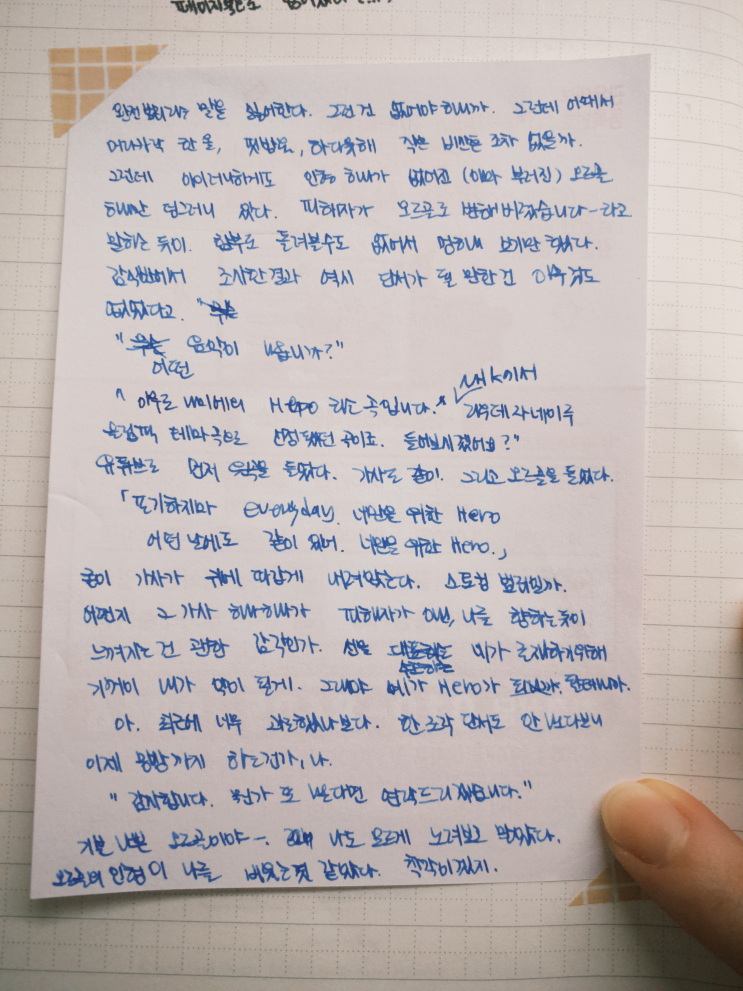 완전범죄라는 말을 싫어한다. 그런 건 없어야 하니까. 그런데 어째서
머리카락 한 올, 핏방울, 하다못해 작은 비산흔 조차 없을까.
그런데 아이러니하게도 인형 하나가 없어진 (아마 부러진) 오르골
하나만 덩그러니 있다. 피해자가 오르골로 변해버렸습니다-라고
말하는 듯이. 함부로 돌려볼수도 없어서 멍하니 보기만 했었다.
감식반에서 조사한 결과 역시 단서가 될 만한 건 아무 것도
없었다고.
" 어떤 음악이 나옵니까?"
" 아무로 나미에의 Hero 라는 곡입니다. NHK에서
리우데자네이루
올림픽 테마곡으로 선정됐던 곡이죠. 들어보시겠어요?"
유튜브로 먼저 원곡을 들었다. 가사도 같이. 그리고 오르골을 들었다.
「포기하지마 everyday. 너만을 위한 Hero
어떤 날에도 같이 있어. 너만을 위한 Hero.」
곧이 가사가 귀에 따갑게 내려앉는다. 스토컴 범죄일까.
어쩐지 그 가사 하나하나가 피해자가 아닌, 나를 향하는 듯이
느껴지는 건 괜한 감각인가. 네가 존재하기 위해
기꺼이 내가 악이 될게. 그래야 네가 Hero가 되니까.
아. 최근에 너무 과로했나보다. 한 조각 단서도 안 보다보니
이제 망상까지 하는건가, 나.
" 감사합니다. 뭔가 또 나온다면 연락드리겠습니다."
기분 나쁜 오르골이야-. 나도 모르게 노려보고 말았다.
오르골의 인형이 나를 비웃는것 같았다. 착각이겠지.